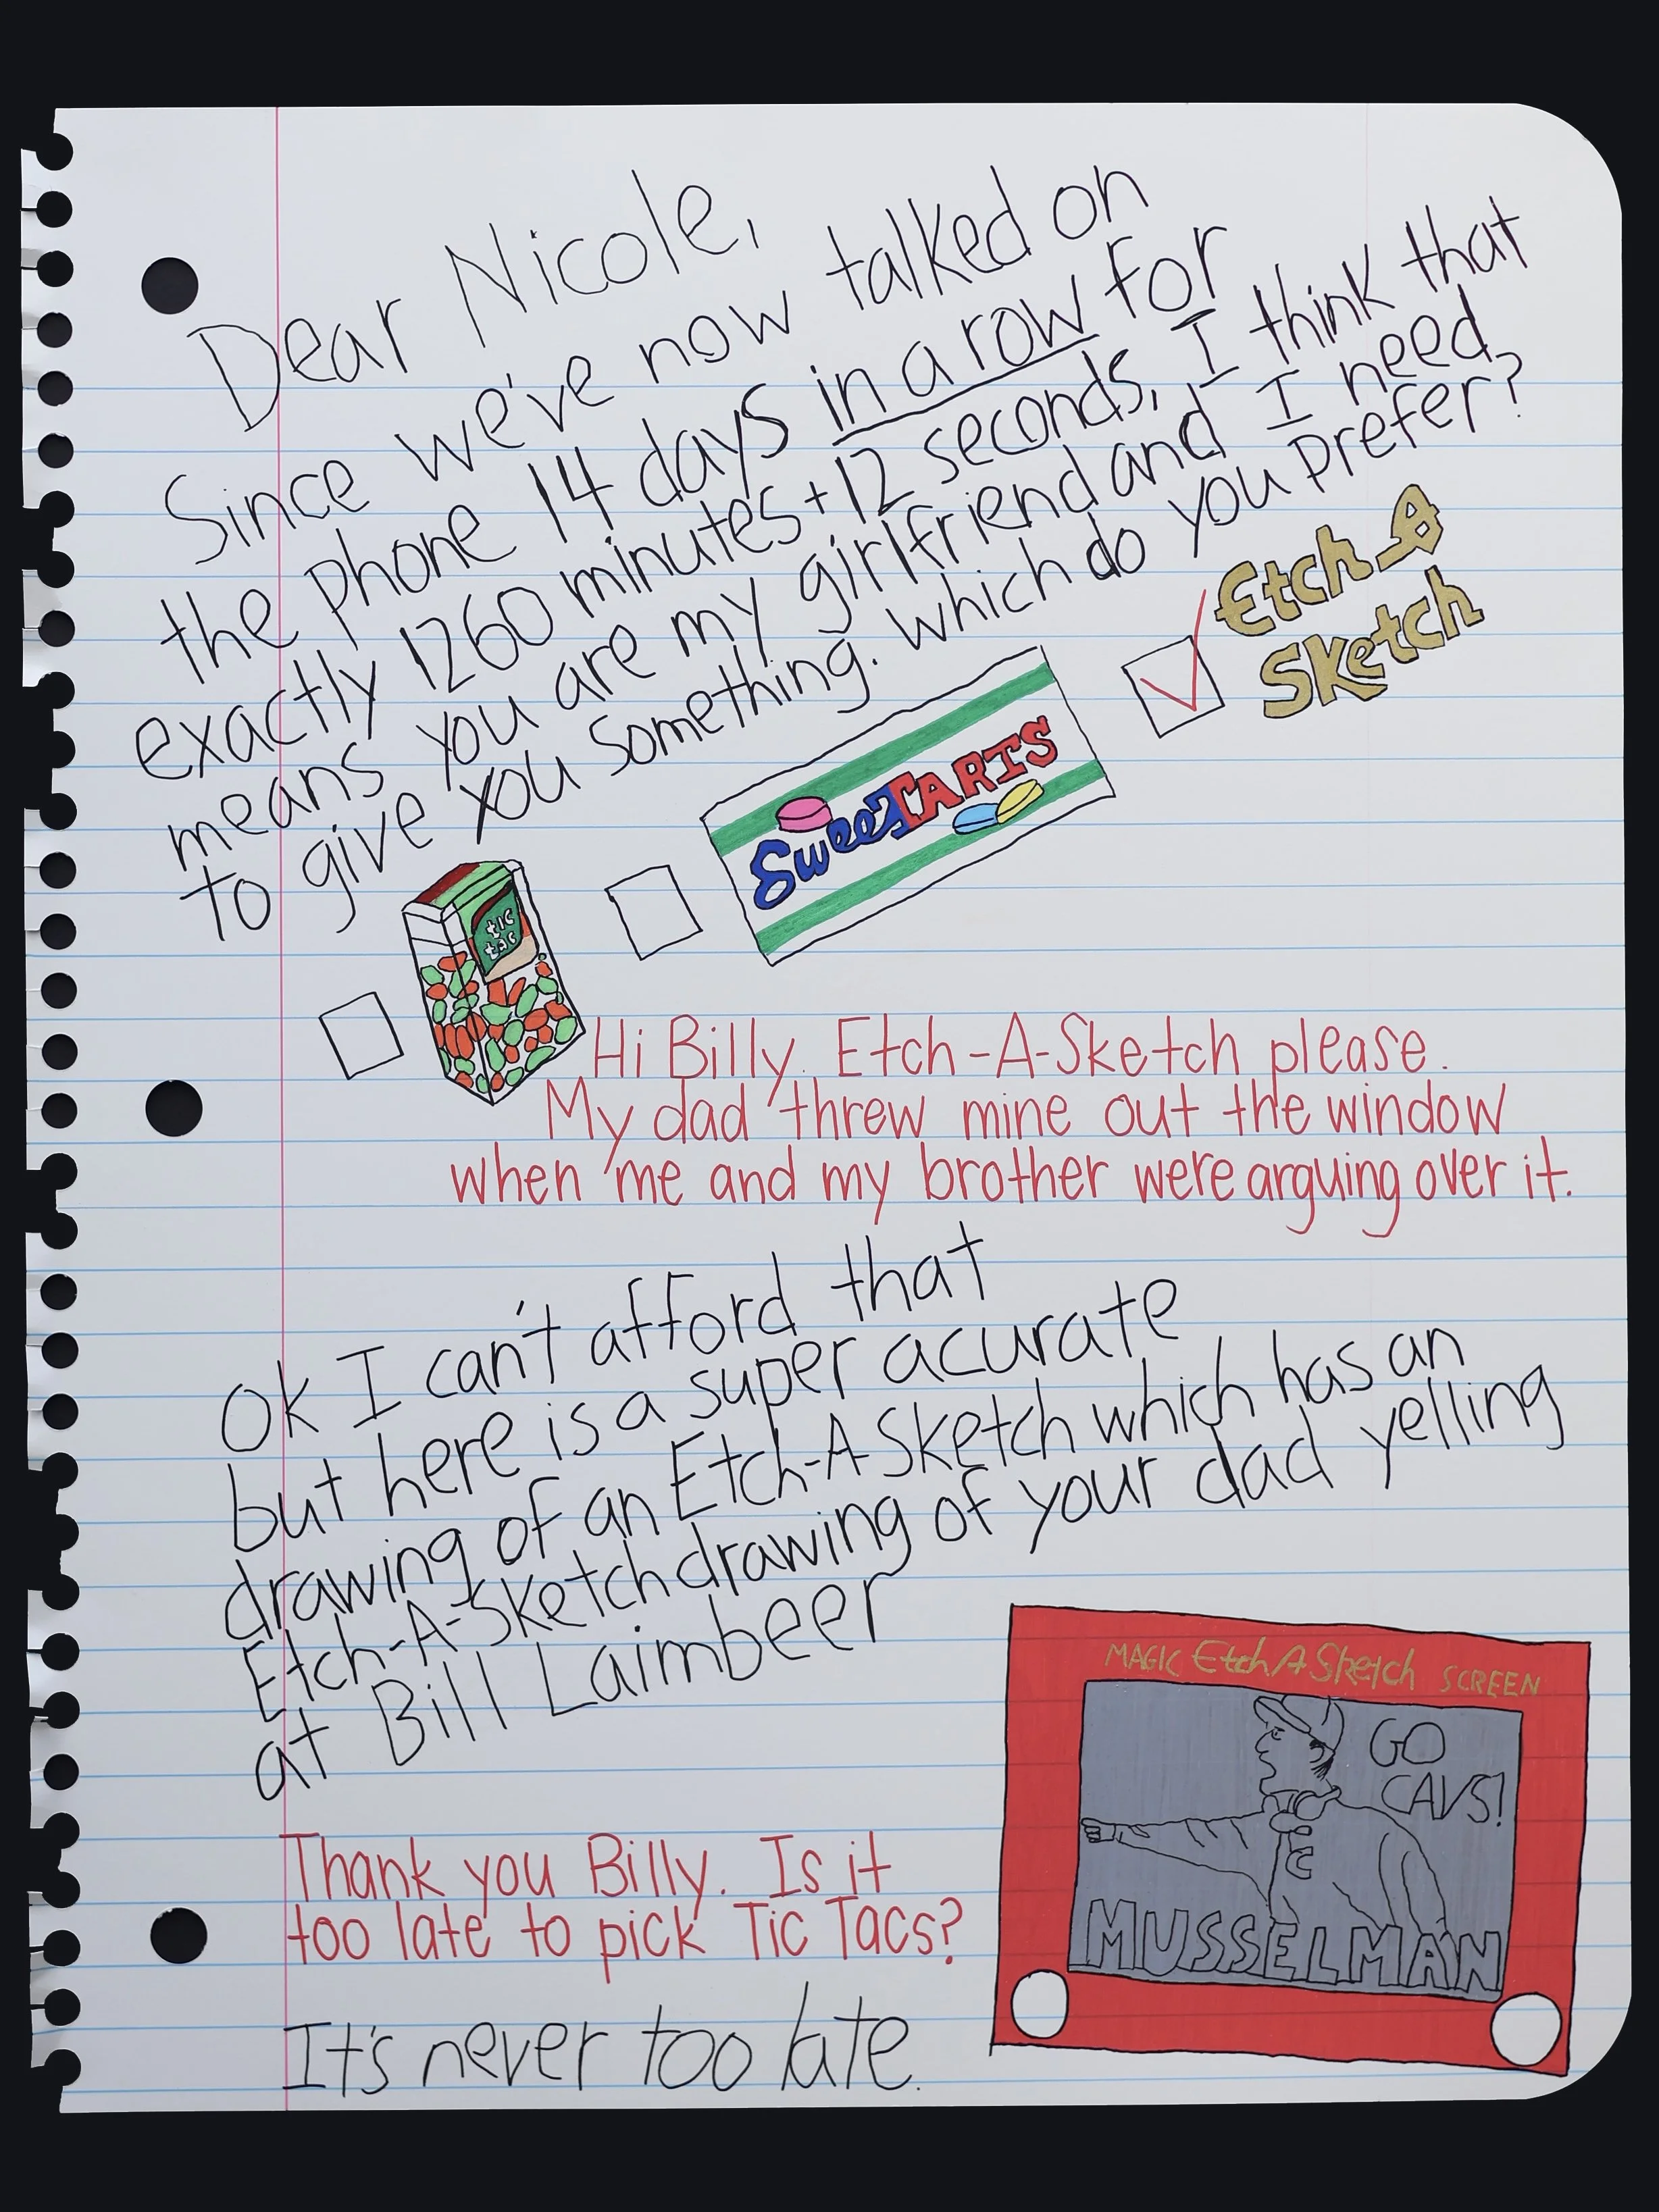 Dear Nicole,
Since we've now talked on
the phone 14 days in a row for
exactly 1260 minutes + 12 seconds, I think that
means you are my girlfriend and I need
to give you something. which do you prefer?
Etch A
Sketch
SweeTARTS
tic
tac
Hi Billy. Etch-A-Sketch please.
My dad threw mine out the window
when me and my brother were arguing over it.
Ok I can't afford that
but here is a super acurate
drawing of an Etch-A-Sketch which has an
Etch-A-Sketch drawing of your dad yelling
at Bill Laimbeer
MAGIC Etch A Sketch SCREEN
GO
CAVS!
C
MUSSELMAN
Thank you Billy. Is it
too late to pick Tic Tacs?
It's never too late.